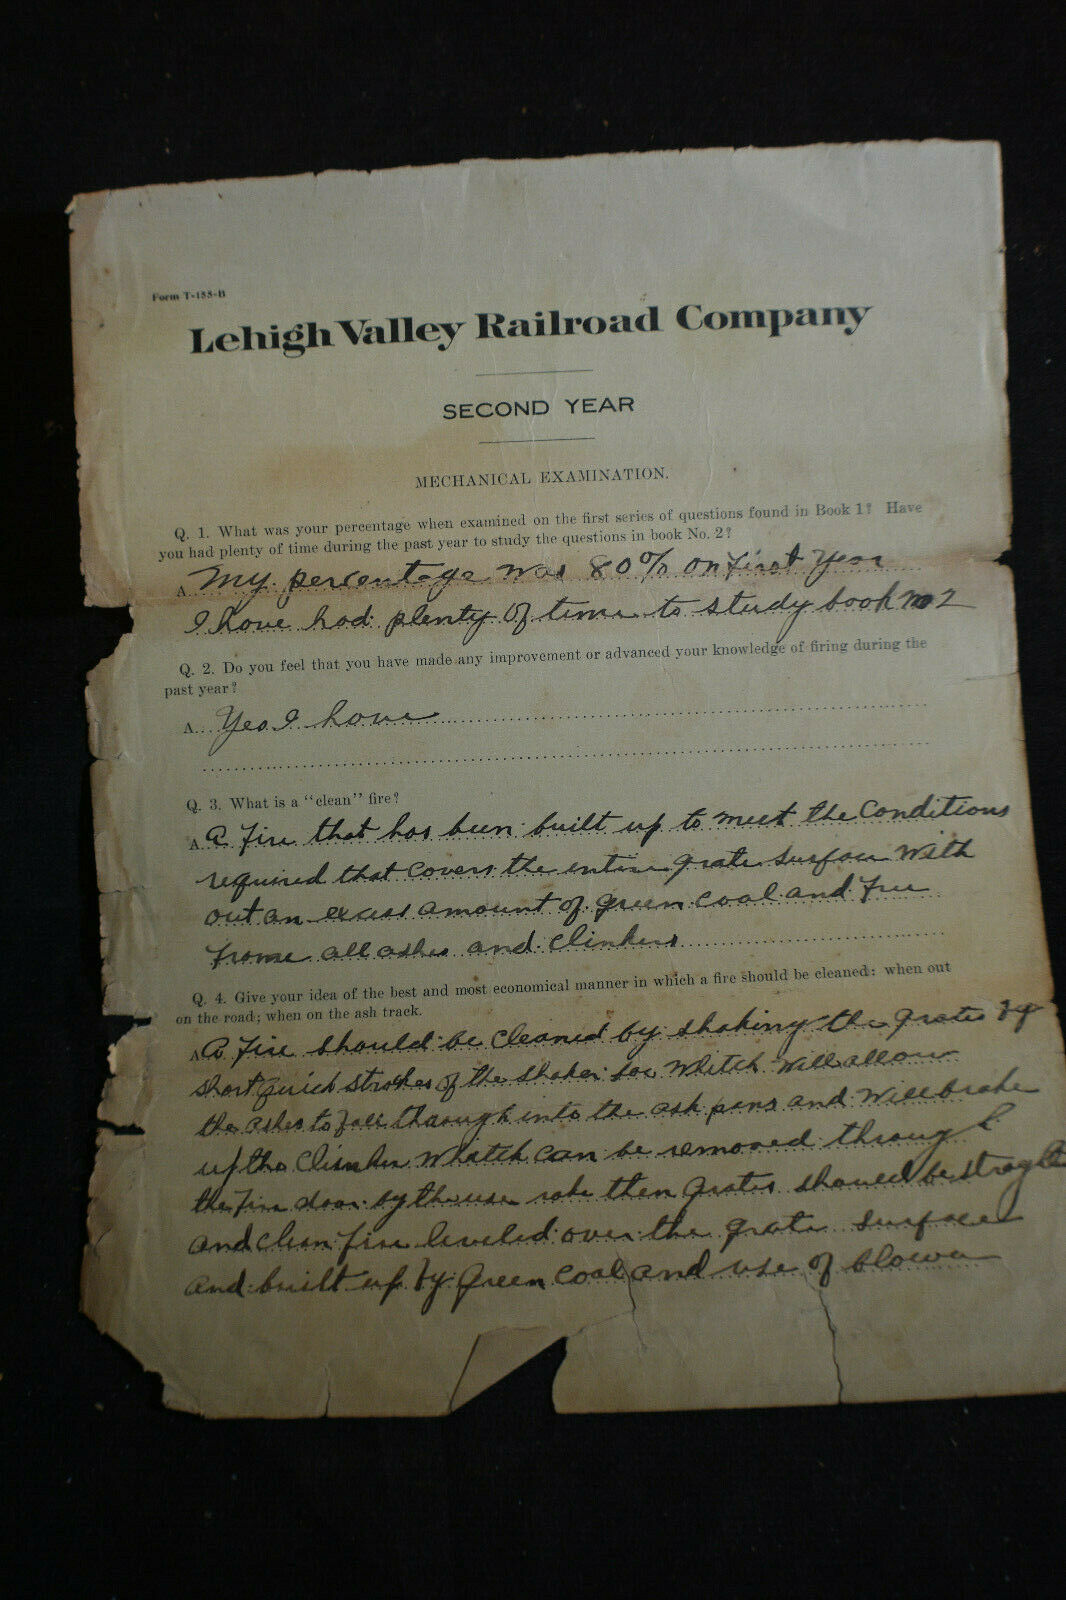 Form T-155-B
Lehigh Valley Railroad Company
SECOND YEAR
MECHANICAL EXAMINATION.
Q. 1. What was your percentage when examined on the first series of questions found in Book 1? Have
you had plenty of time during the past year to study the questions in book No. 2?
A. My percentage was 80% on first year
I have had plenty of time to study book no 2
Q. 2. Do you feel that you have made any improvement or advanced your knowledge of firing during the
past year?
A. Yes I have
Q. 3. What is a "clean" fire?
A. A fire that has been built up to meet the conditions
required that covers the entire grate surface with
out an excess amount of green coal and free
frome all ashes and clinkers
Q. 4. Give your idea of the best and most economical manner in which a fire should be cleaned: when out
on the road; when on the ash track.
A. A fire should be cleaned by shaking the grates by
short quick strokes of the shaker bar whitch will allow
the ashes to fall through into the ash pans and will brake
up the clinker whitch can be removed through
the fire door by the use rake then grates should be straght
and clean fire leveled over the grate surface
and built up by green coal and use of blower